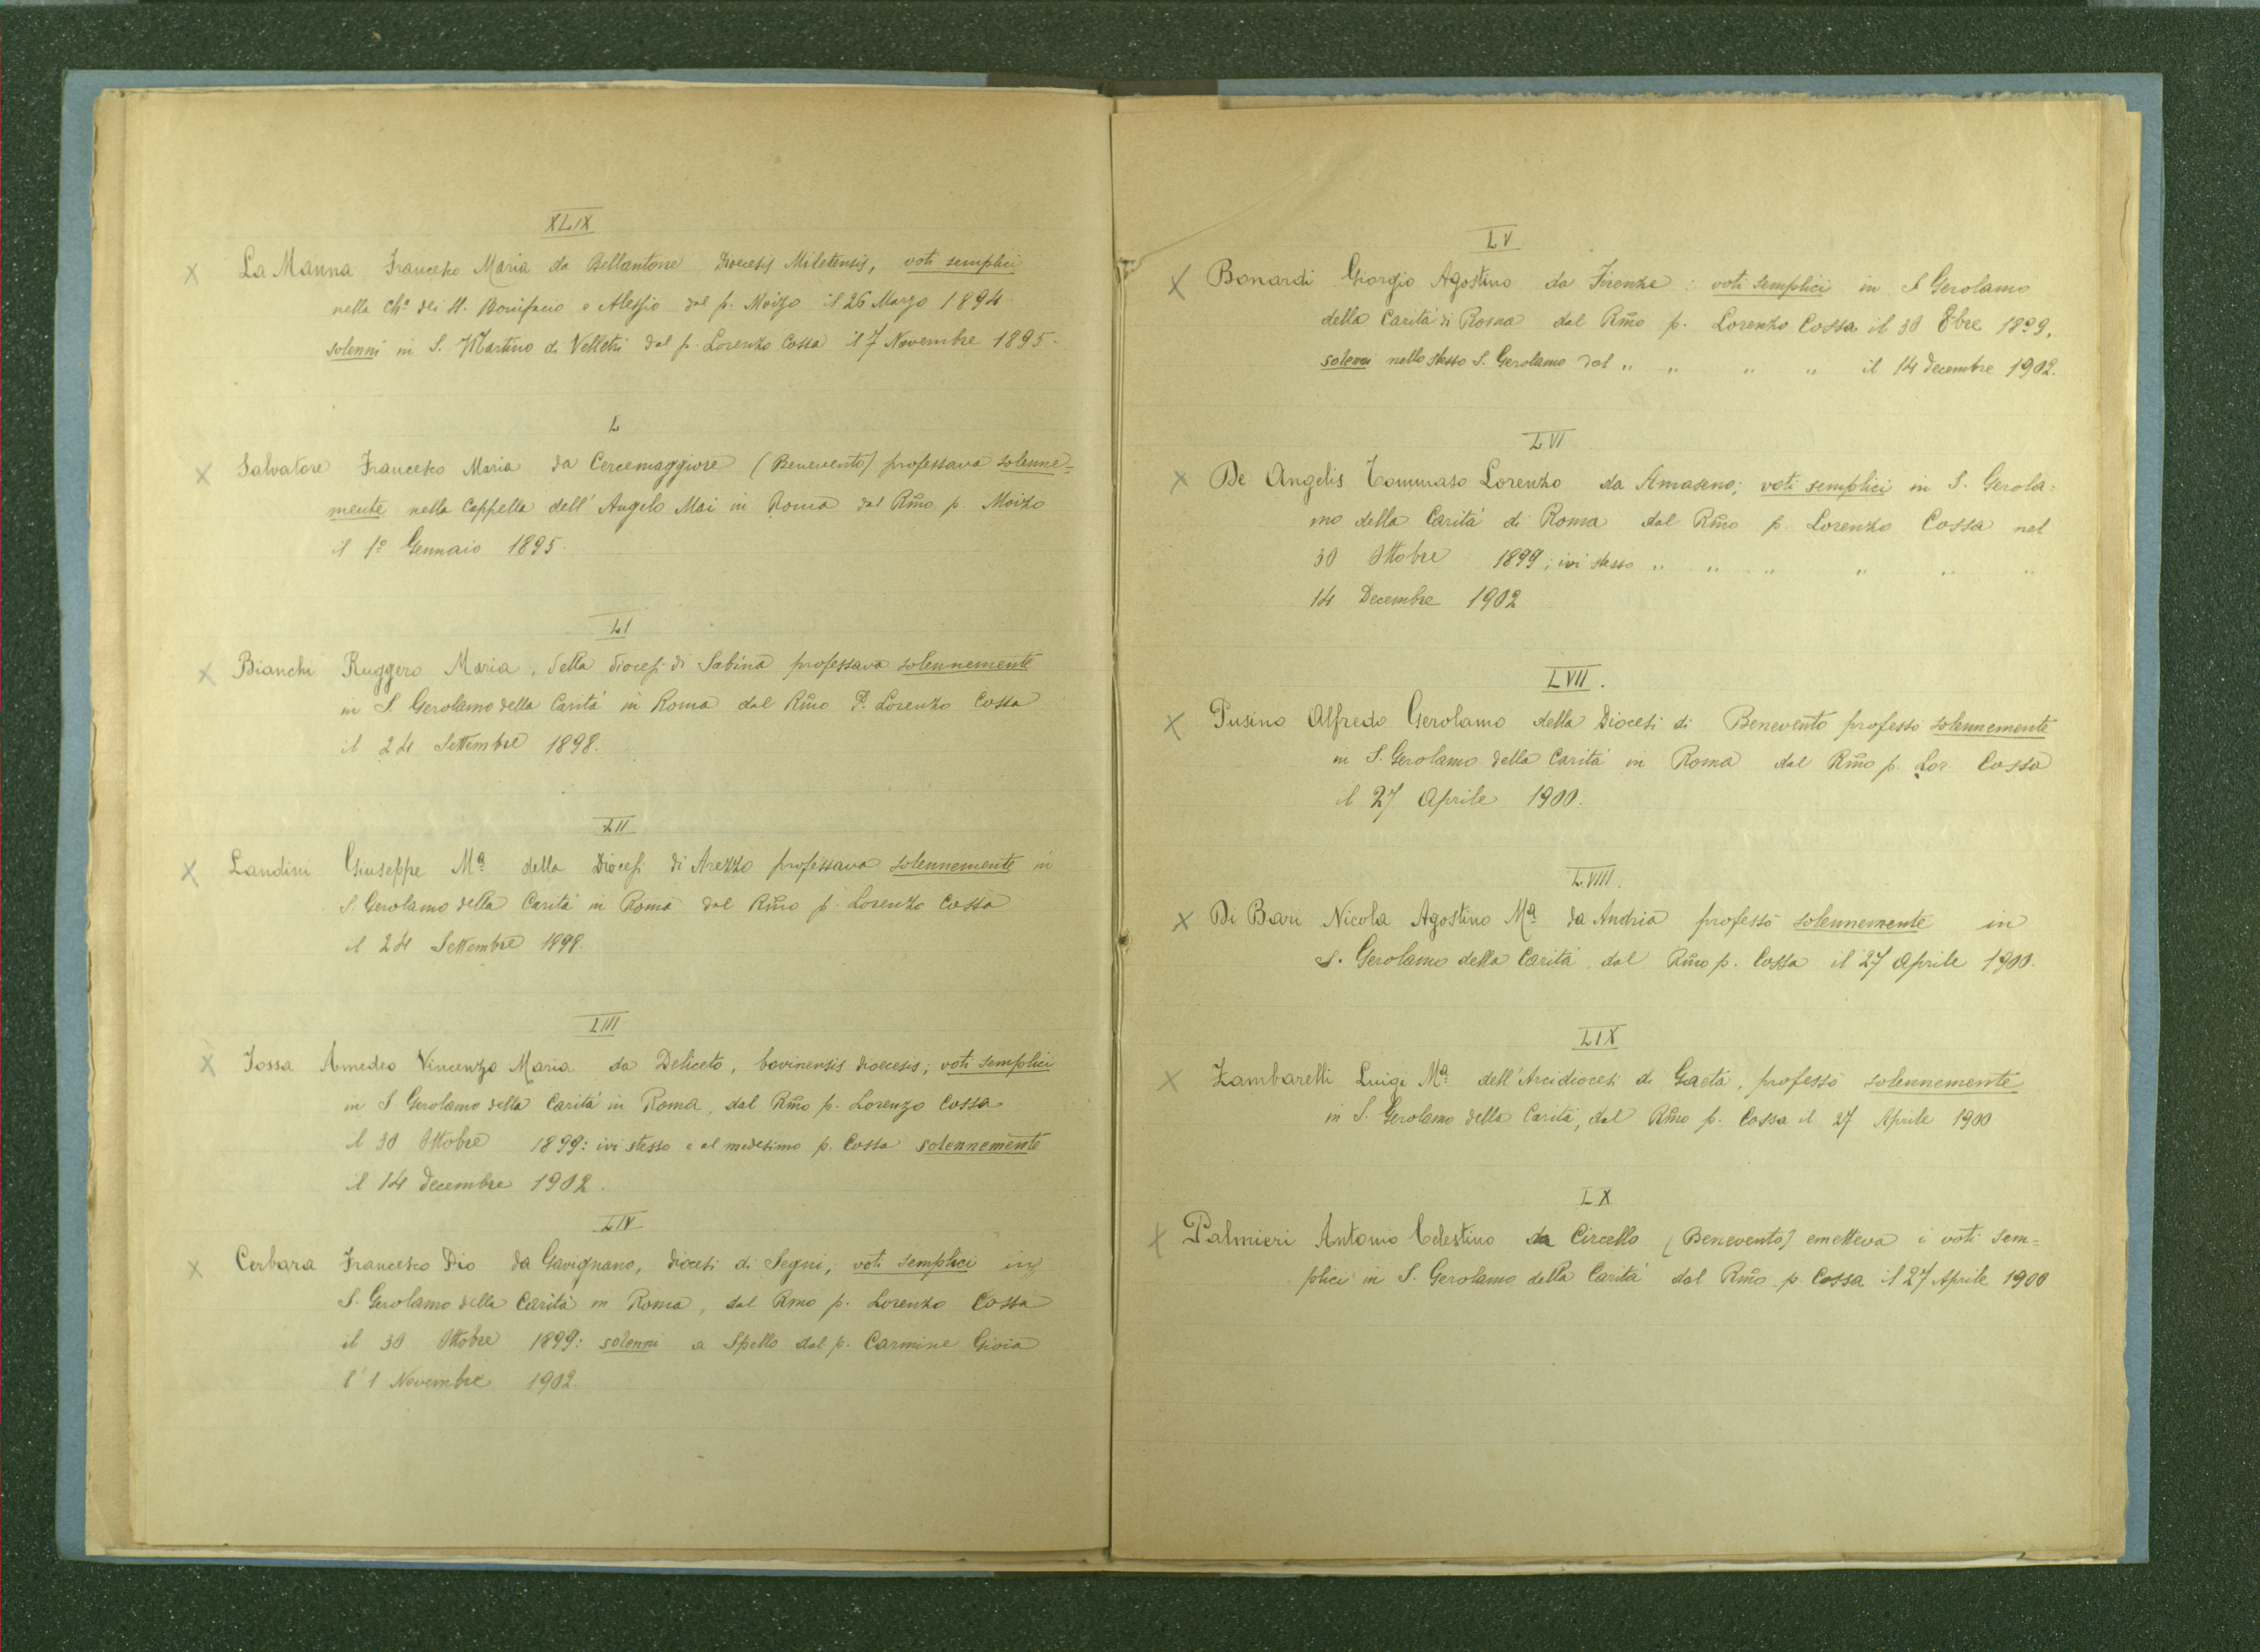 XLIX
X La Manna Francesco Maria da Bellantone Diocesis Miletensis, voti semplici
nella Chª dei SS. Bonifacio e Alessio dal p. Moizo il 26 Marzo 1894.
solenni in S. Martino di Velletri dal p. Lorenzo Cossa il 7 Novembre 1895.
L
X Salvatore Francesco Maria da Cercemaggiore (Benevento) professava solenne=
mente nella Cappella dell' Angelo Mai in Roma dal Rm̃o p. Moizo
il 1º Gennaio 1895.
LI
X Bianchi Ruggero Maria, della diocesi di Sabina professava solennemente
in S. Gerolamo della Carità in Roma dal Rm̃o P. Lorenzo Cossa
il 24 Settembre 1898.
LII
X Landini Giuseppe Mª della Diocesi di Arezzo professava solennemente in
S. Gerolamo della Carità in Roma dal Rm̃o p. Lorenzo Cossa
il 24 Settembre 1898.
LIII
X Iossa Amedeo Vincenzo Maria da Deliceto, bovinensis dioecesis; voti semplici
in S Gerolamo della Carità in Roma, dal Rm̃o p. Lorenzo Cossa
il 30 Ottobre 1899: ivi stesso e al medesimo p. Cossa solennemente
il 14 decembre 1902.
LIV
X Cerbara Francesco Pio da Gavignano, diocesi di Segni, voti semplici in
S. Gerolamo della Carità in Roma, dal Rmo p. Lorenzo Cossa
il 30 Ottobre 1899: solenni a Spello dal p. Carmine Gioia
l' 1 Novembre 1902.
LV
X Bonardi Giorgio Agostino da Firenze: voti semplici in S Gerolamo
della Carità di Roma dal Rm̃o p. Lorenzo Cossa il 30 8bre 1899,
solenni nello stesso S. Gerolamo dal " " " " il 14 decembre 1902.
LVI
X De Angelis Tommaso Lorenzo da Amaseno; voti semplici in S. Gerola=
mo della Carità di Roma dal Rm̃o p. Lorenzo Cossa nel
30 Ottobre 1899; ivi stesso " " " " " "
14 Decembre 1902
LVII.
X Pusino Alfredo Gerolamo della Diocesi di Benevento professò solennemente
in S. Gerolamo della Carità in Roma dal Rm̃o p. Lor. Cossa
il 27 Aprile 1900.
LVIII.
X Di Bari Nicola Agostino Mª da Andria professò solennemente in
S. Gerolamo della Carità dal Rm̃o p. Cossa il 27 Aprile 1900.
LIX
X Zambarelli Luigi Mª dell'Arcidiocesi di Gaeta, professò solennemente
in S. Gerolamo della Carità, dal Rm̃o p. Cossa il 27 Aprile 1900
LX
X Palmieri Antonio Celestino da Circello (Benevento) emetteva i voti sem=
plici in S. Gerolamo della Carità dal Rm̃o p. Cossa il 27 Aprile 1900